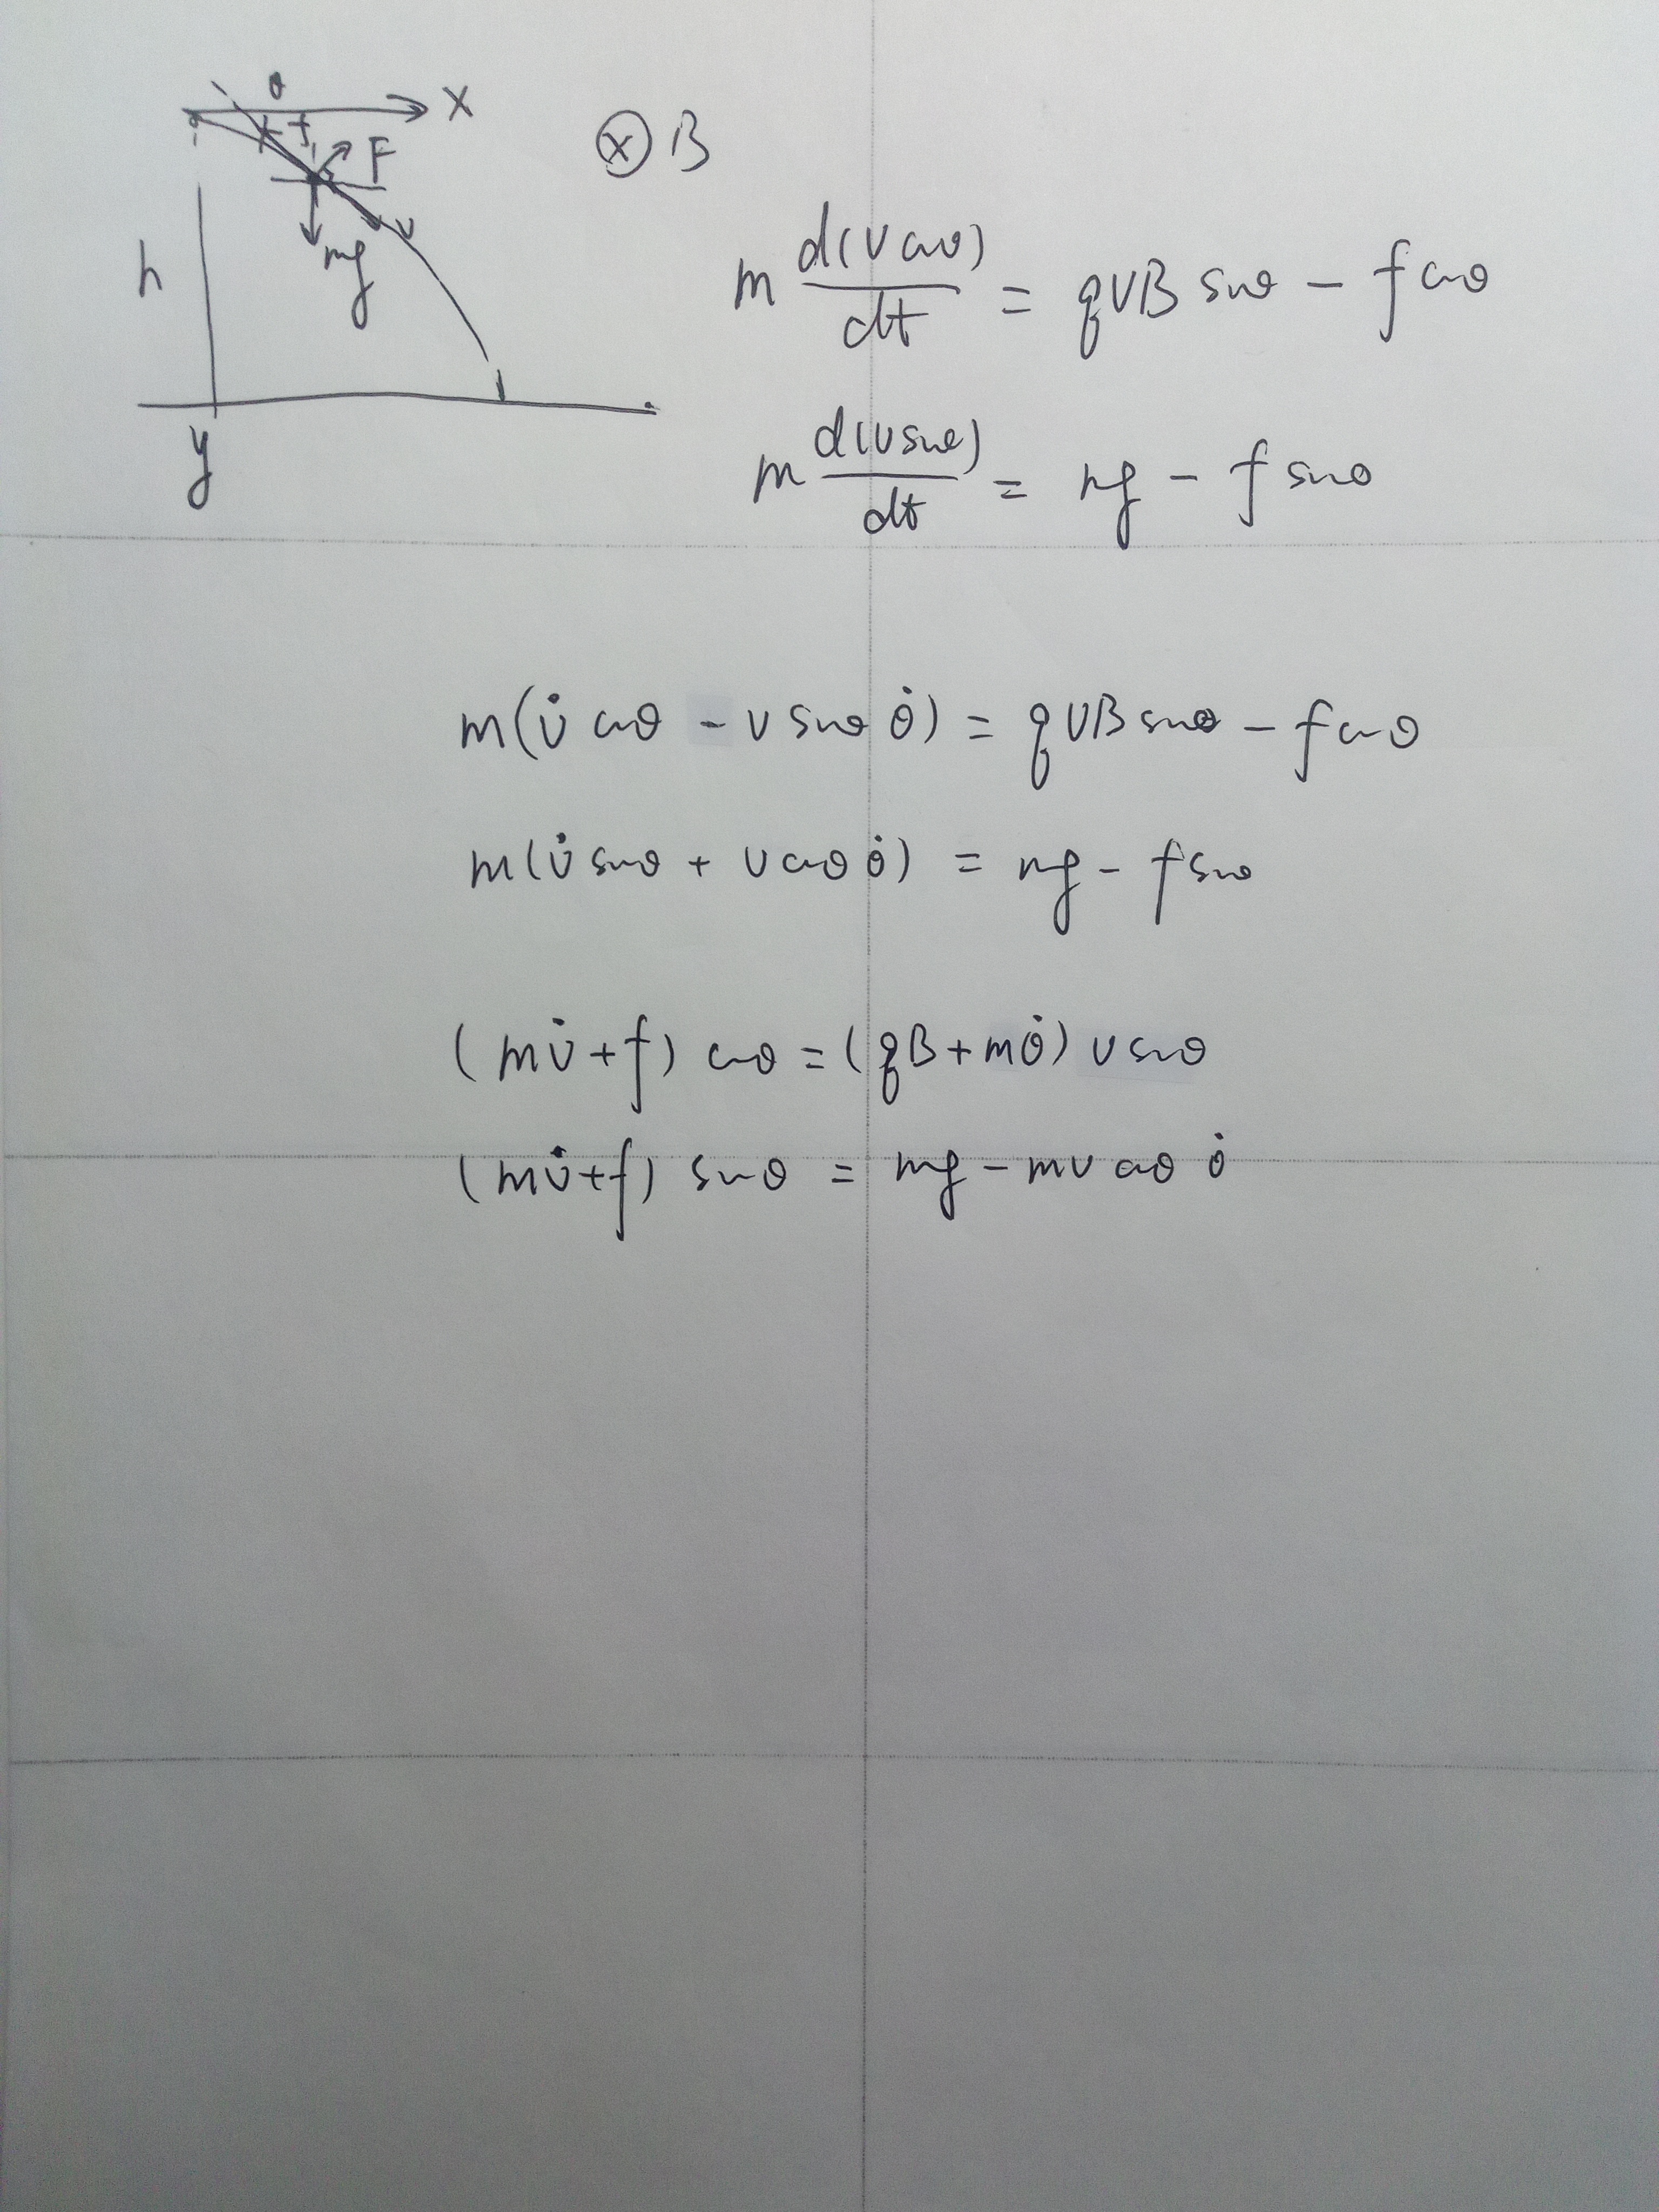 θ
x
f
F
v
mg
h
y
⊗ B
m d(v cosθ)/dt = qvB sinθ − f cosθ
m d(v sinθ)/dt = mg − f sinθ
m(v̇ cosθ − v sinθ θ̇) = qvB sinθ − f cosθ
m(v̇ sinθ + v cosθ θ̇) = mg − f sinθ
(mv̇ + f) cosθ = (qB + mθ̇) v sinθ
(mv̇ + f) sinθ = mg − mv cosθ θ̇